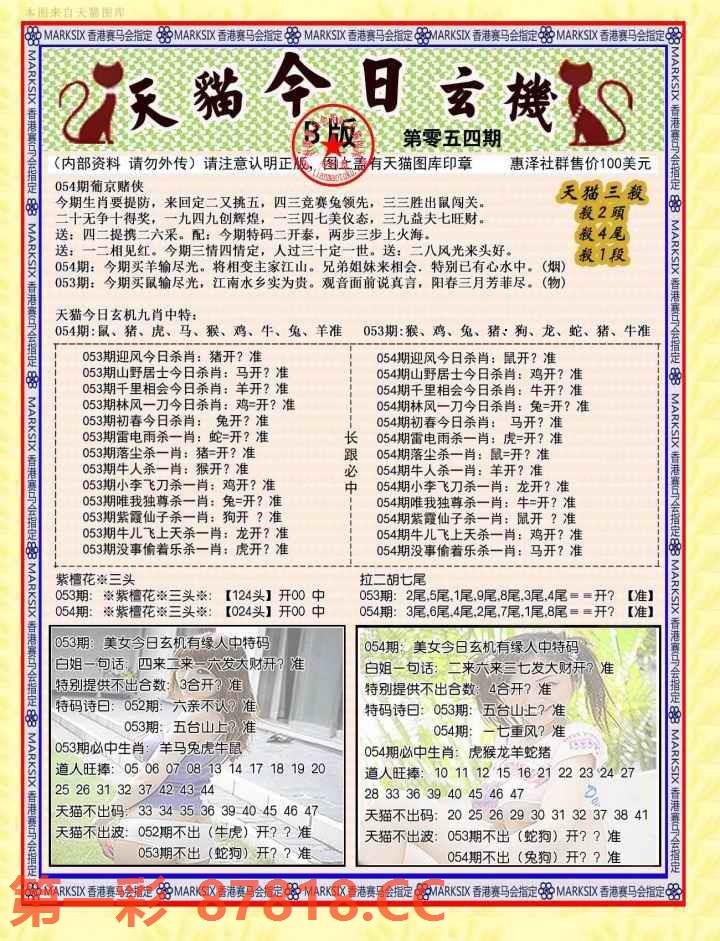 本图来自天猫图库
MARKSIX 香港赛马会指定 MARKSIX 香港赛马会指定 MARKSIX 香港赛马会指定 MARKSIX 香港赛马会指定 MARKSIX 香港赛马会指定
天貓今日玄機
B版
第零五四期
(内部资料 请勿外传) 请注意认明正版，图上盖有天猫图库印章 惠泽社群售价100美元
054期葡京赌侠
今期生肖要提防，来回定二又挑五，四三竞赛兔领先，三三胜出鼠闯关。
二十无争十得奖，一九四九创辉煌，一三四七美仪态，三九益夫七旺财。
送：四二提携二六采。配：今期特码二开泰，两步三步上火海。
送：一二相见红。今期三情四情定，人过三十定一世。送：二八风光来头好。
054期：今期买羊输尽光。将相变主家江山。兄弟姐妹来相会．特别已有心水中。(烟)
053期：今期买鼠输尽光，江南水乡实为贵。观音面前说真言，阳春三月芳菲尽。(物)
天猫三殺
殺2頭
殺4尾
殺1段
天猫今日玄机九肖中特：
054期：鼠、猪、虎、马、猴、鸡、牛、兔、羊准 053期：猴、鸡、兔、猪：狗、龙、蛇、猪、牛准
053期迎风今日杀肖：猪开？准
053期山野居士今日杀肖：马开？准
053期千里相会今日杀肖：羊开？准
053期林风一刀今日杀肖：鸡=开？准
053期初春今日杀肖： 兔开？准
053期雷电雨杀一肖：蛇=开？准
053期落尘杀一肖：猪=开？准
053期牛人杀一肖：猴开？准
053期小李飞刀杀一肖：鸡开？准
053期唯我独尊杀一肖：兔=开？准
053期紫霞仙子杀一肖：狗开 ？准
053期牛儿飞上天杀一肖：龙开？准
053期没事偷着乐杀一肖：虎开？准
长跟必中
054期迎风今日杀肖：鼠开？准
054期山野居士今日杀肖：鸡开？准
054期千里相会今日杀肖：牛开？准
054期林风一刀今日杀肖：兔=开？准
054期初春今日杀肖： 马开？准
054期雷电雨杀一肖：虎=开？准
054期落尘杀一肖：鼠=开？准
054期牛人杀一肖：羊开？准
054期小李飞刀杀一肖：龙开？准
054期唯我独尊杀一肖：牛=开？准
054期紫霞仙子杀一肖：鼠开 ？准
054期牛儿飞上天杀一肖：鸡开？准
054期没事偷着乐杀一肖：马开？准
紫檀花※三头
053期：※紫檀花※三头※：【124头】开00 中
054期：※紫檀花※三头※：【024头】开00 中
拉二胡七尾
053期：2尾,5尾,1尾,9尾,8尾,3尾,4尾＝＝开？【准】
054期：3尾,6尾,4尾,2尾,7尾,1尾,8尾＝＝开？【准】
053期：美女今日玄机有缘人中特码
白姐一句话：四来二来一六发大财开？准
特别提供不出合数：3合开？准
特码诗曰：052期：六亲不认？准
053期：五台山上？准
053期必中生肖：羊马兔虎牛鼠
道人旺捧：05 06 07 08 13 14 17 18 19 20
25 26 31 32 37 42 43 44
天猫不出码：33 34 35 36 39 40 45 46 47
天猫不出波：052期不出（牛虎）开？？准
053期不出（蛇狗）开？？准
054期：美女今日玄机有缘人中特码
白姐一句话：二来六来三七发大财开？准
特别提供不出合数：4合开？准
特码诗曰：053期：五台山上？准
054期：一七重风？准
054期必中生肖：虎猴龙羊蛇猪
道人旺捧：10 11 12 15 16 21 22 23 24 27
28 33 36 39 40 45 46 47
天猫不出码：20 25 26 29 30 31 32 37 38 41
天猫不出波：053期不出（蛇狗）开？？准
054期不出（兔狗）开？？准
MARKSIX 香港赛马会指定 MARKSIX 香港赛马会指定 MARKSIX 香港赛马会指定 MARKSIX 香港赛马会指定 MARKSIX 香港赛马会指定
第一彩 87818.CC